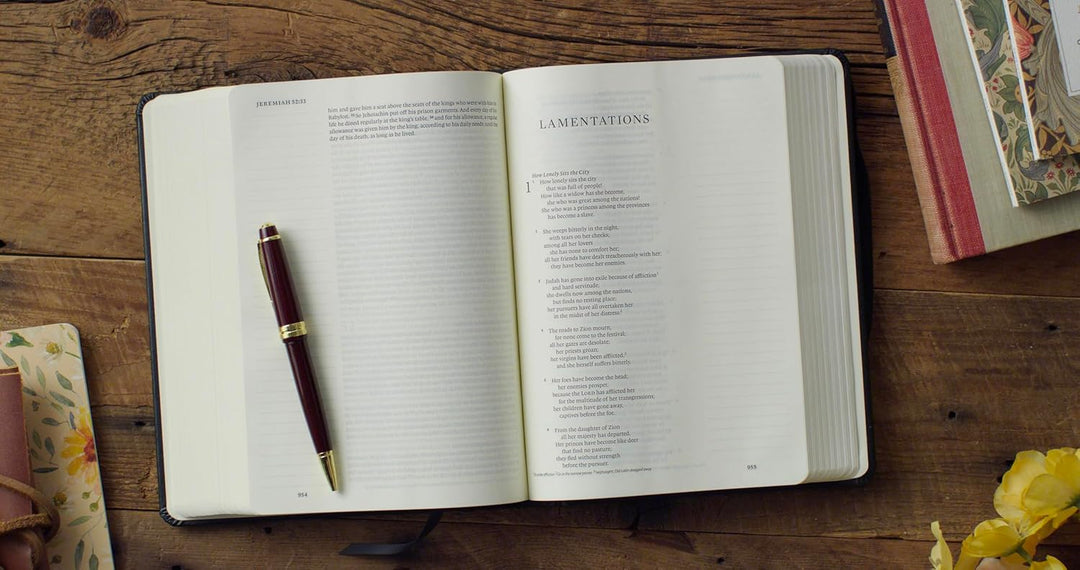 JEREMIAH 52:33
him and gave him a seat above the seats of the kings who were with him in
Babylon. 33 So Jehoiachin put off his prison garments. And every day of his
life he dined regularly at the king's table, 34 and for his allowance, a regular
allowance was given him by the king, according to his daily needs, until the
day of his death, as long as he lived.
954
LAMENTATIONS
How Lonely Sits the City
1 How lonely sits the city
that was full of people!
How like a widow has she become,
she who was great among the nations!
She who was a princess among the provinces
has become a slave.
2 She weeps bitterly in the night,
with tears on her cheeks;
among all her lovers
she has none to comfort her;
all her friends have dealt treacherously with her;
they have become her enemies.
3 Judah has gone into exile because of affliction1
and hard servitude;
she dwells now among the nations,
but finds no resting place;
her pursuers have all overtaken her
in the midst of her distress.2
4 The roads to Zion mourn,
for none come to the festival;
all her gates are desolate;
her priests groan;
her virgins have been afflicted,3
and she herself suffers bitterly.
5 Her foes have become the head;
her enemies prosper,
because the LORD has afflicted her
for the multitude of her transgressions;
her children have gone away,
captives before the foe.
6 From the daughter of Zion
all her majesty has departed.
Her princes have become like deer
that find no pasture;
they fled without strength
before the pursuer.
955